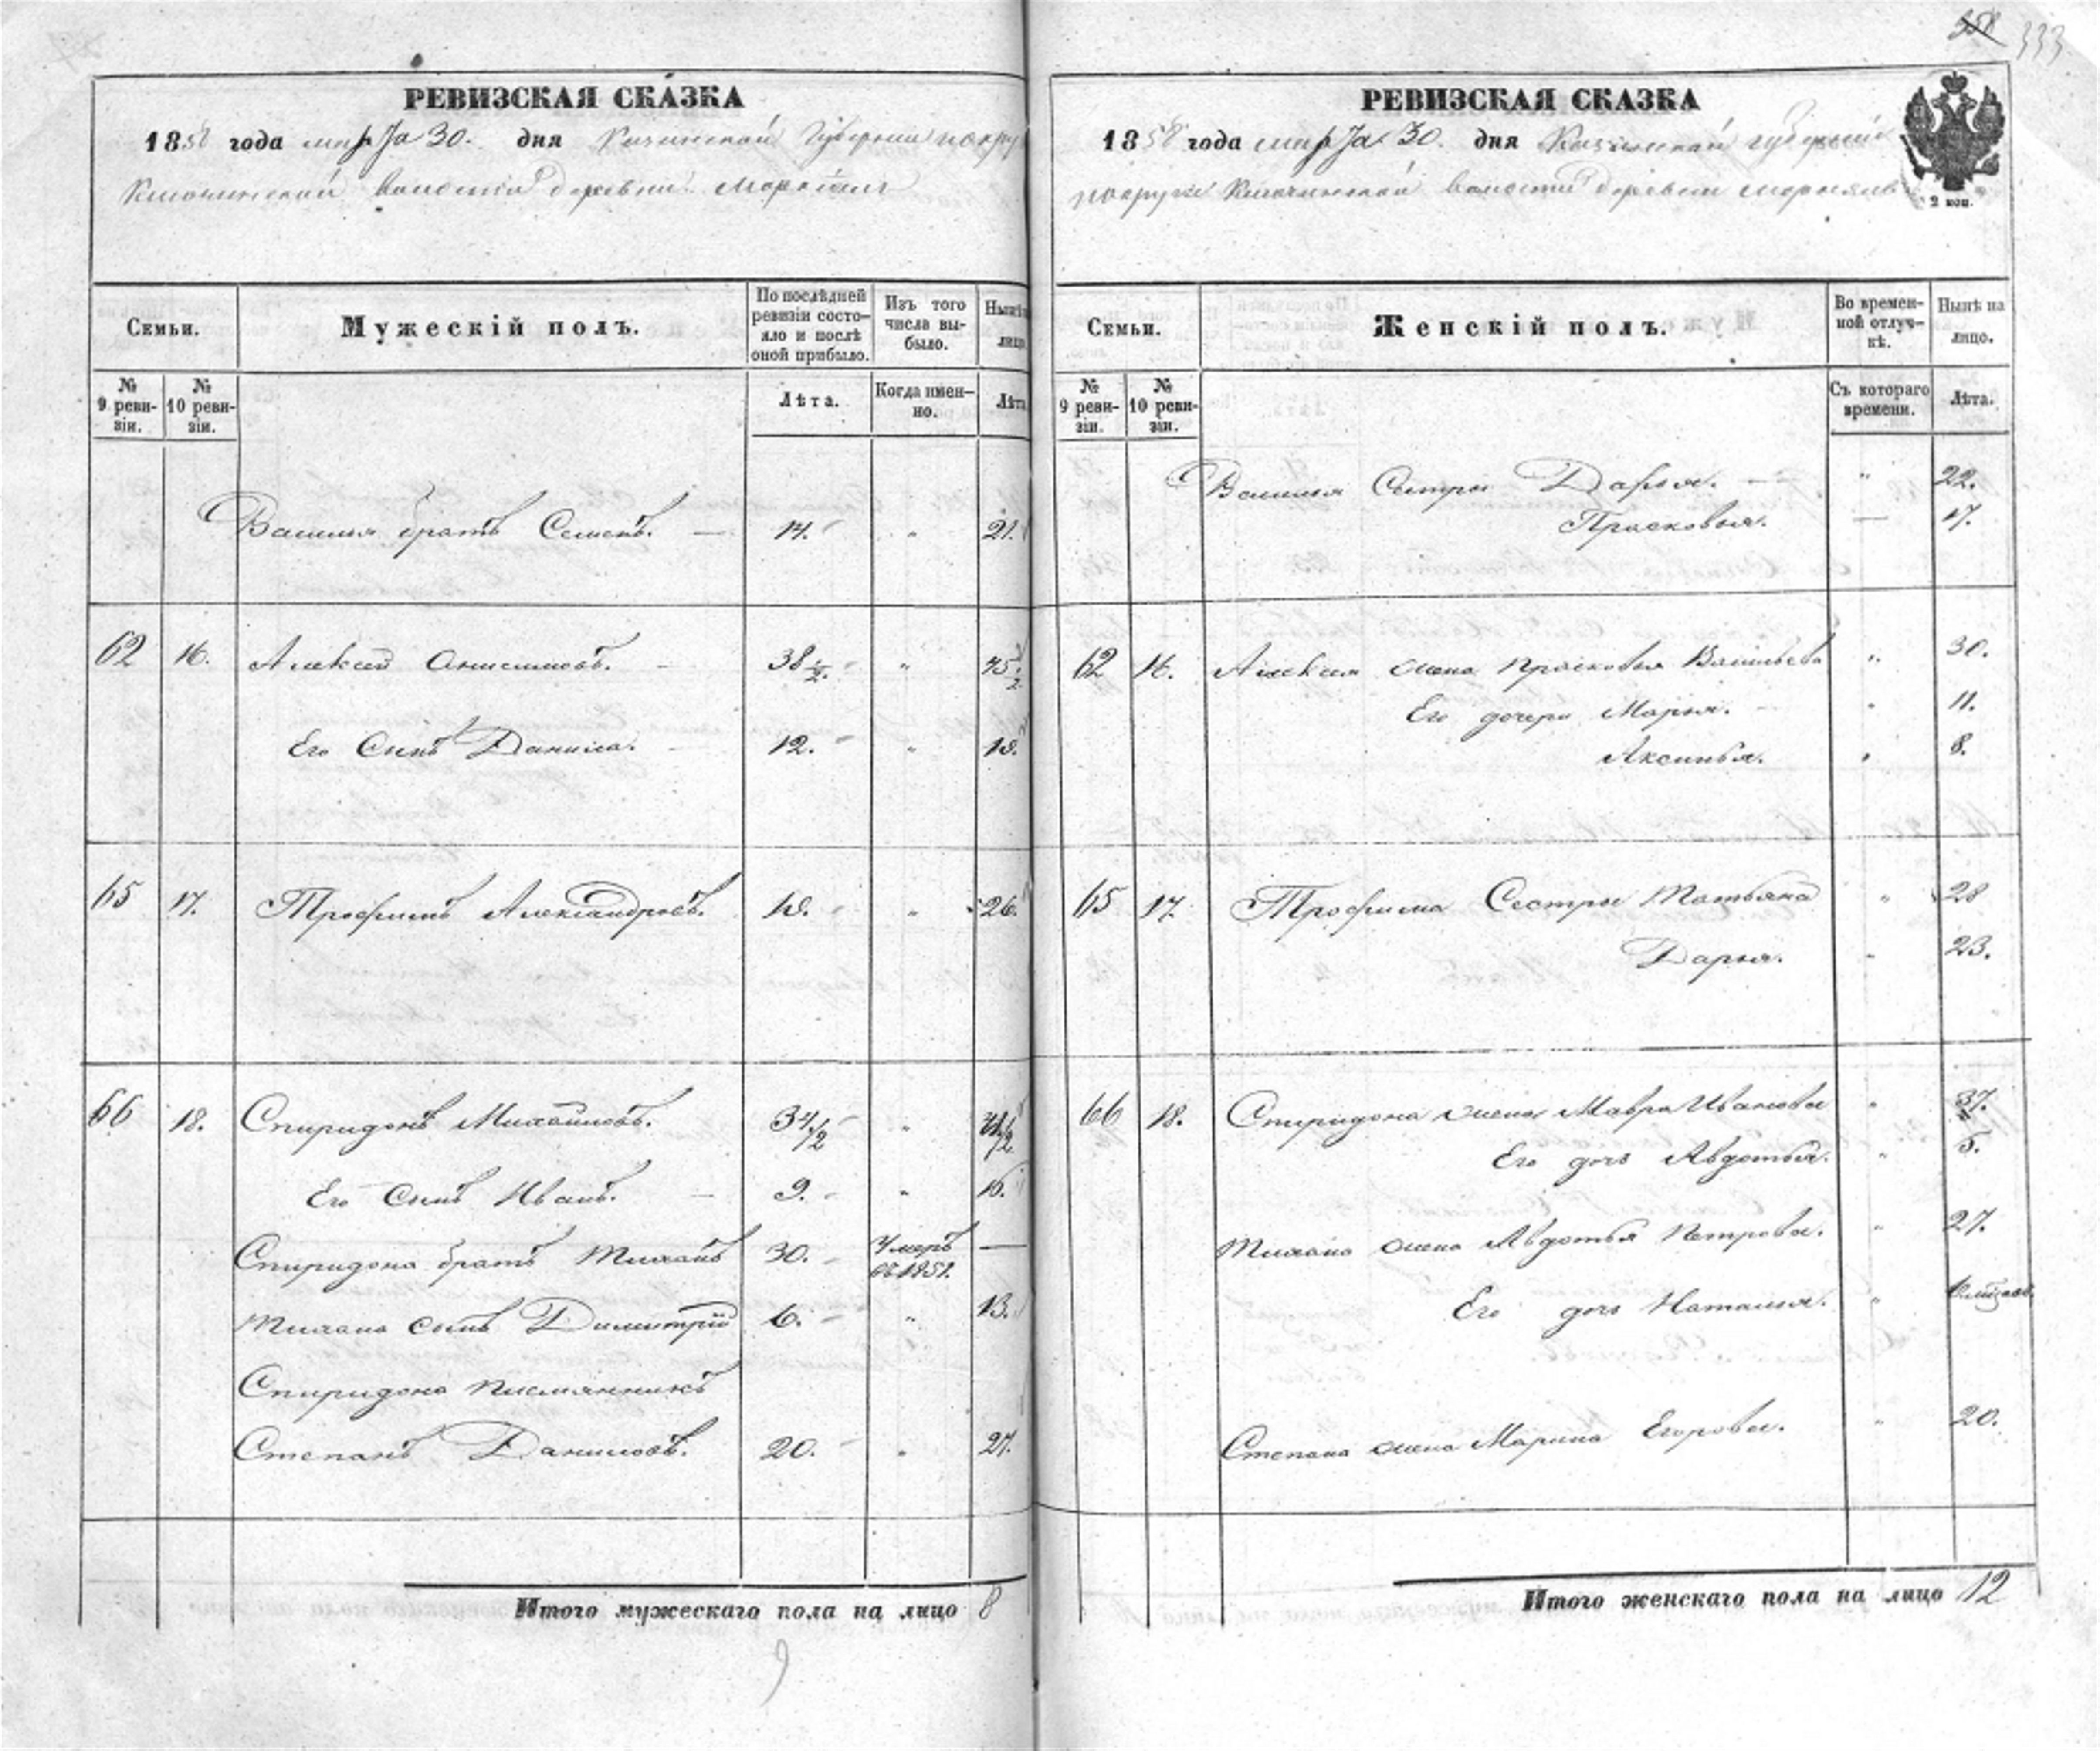 358 333
РЕВИЗСКАЯ СКАЗКА
1858 года марта 30. дня Казанской Губернии
волости деревни
Семьи.
Мужескій полъ.
По послѣдней ревизіи состояло и послѣ оной прибыло.
Изъ того числа выбыло.
Нынѣ на лицо.
№ 9 ревизіи.
№ 10 ревизіи.
Лѣта.
Когда именно.
Лѣта
Василья братъ Семенъ. — 14. " 21.
62 16. Алексей Анисимовъ. 38 1/2. " 45 1/2
Его Сынъ Данила. 12. " 19.
65 17. Трофимъ Александровъ. 19. " 26.
66 18. Спиридонъ Михайловъ. 34 1/2 " 41 1/2
Его Сынъ Иванъ. — 9. " 16.
Спиридона братъ Михайлъ 30. Умеръ въ 1851. —
Михайла сынъ Димитрій 6. " 13.
Спиридона племянникъ
Степанъ Даниловъ. 20. " 27.
Итого мужескаго пола на лицо 8
9
РЕВИЗСКАЯ СКАЗКА
1858 года марта 30. дня Казанской губерніи
волости деревни
2 коп.
Семьи.
Женскій полъ.
Во временной отлучкѣ.
Нынѣ на лицо.
№ 9 ревизіи.
№ 10 ревизіи.
Съ котораго времени.
Лѣта.
Василья Сестры Дарья. — " 22.
Прасковья. — 17.
62 16. Алексея жена Прасковья Васильева " 30.
Его дочери Марья. " 11.
Аксинья. " 8.
65 17. Трофима Сестры Татьяна " 28
Дарья. " 23.
66 18. Спиридона жена Мавра Иванова " 37.
Его дочь Авдотья. " 5.
Михайла жена Авдотья Петрова. " 27.
Его дочь Наталья. "
Степана жена Марина Егорова. " 20.
Итого женскаго пола на лицо 12